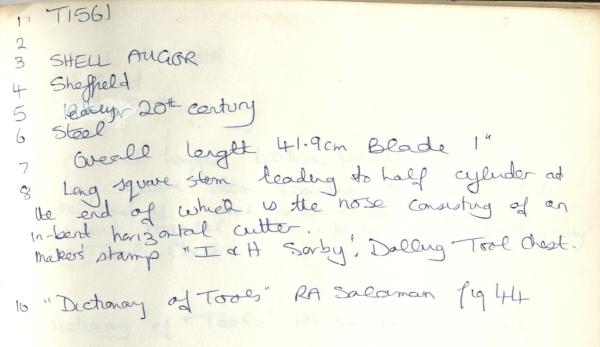 1 T1561
2
3 SHELL AUGOR
4 Sheffield
5 early 20th century
6 Steel
7 Overall length 41.9cm Blade 1"
8 Long square stem leading to half cylinder at
the end of which is the nose consisting of an
in-bent horizontal cutter.
Makers' stamp "I & H Sorby'. Tool Chest.
10 "Dictionary of Tools" RA Salaman fig 44